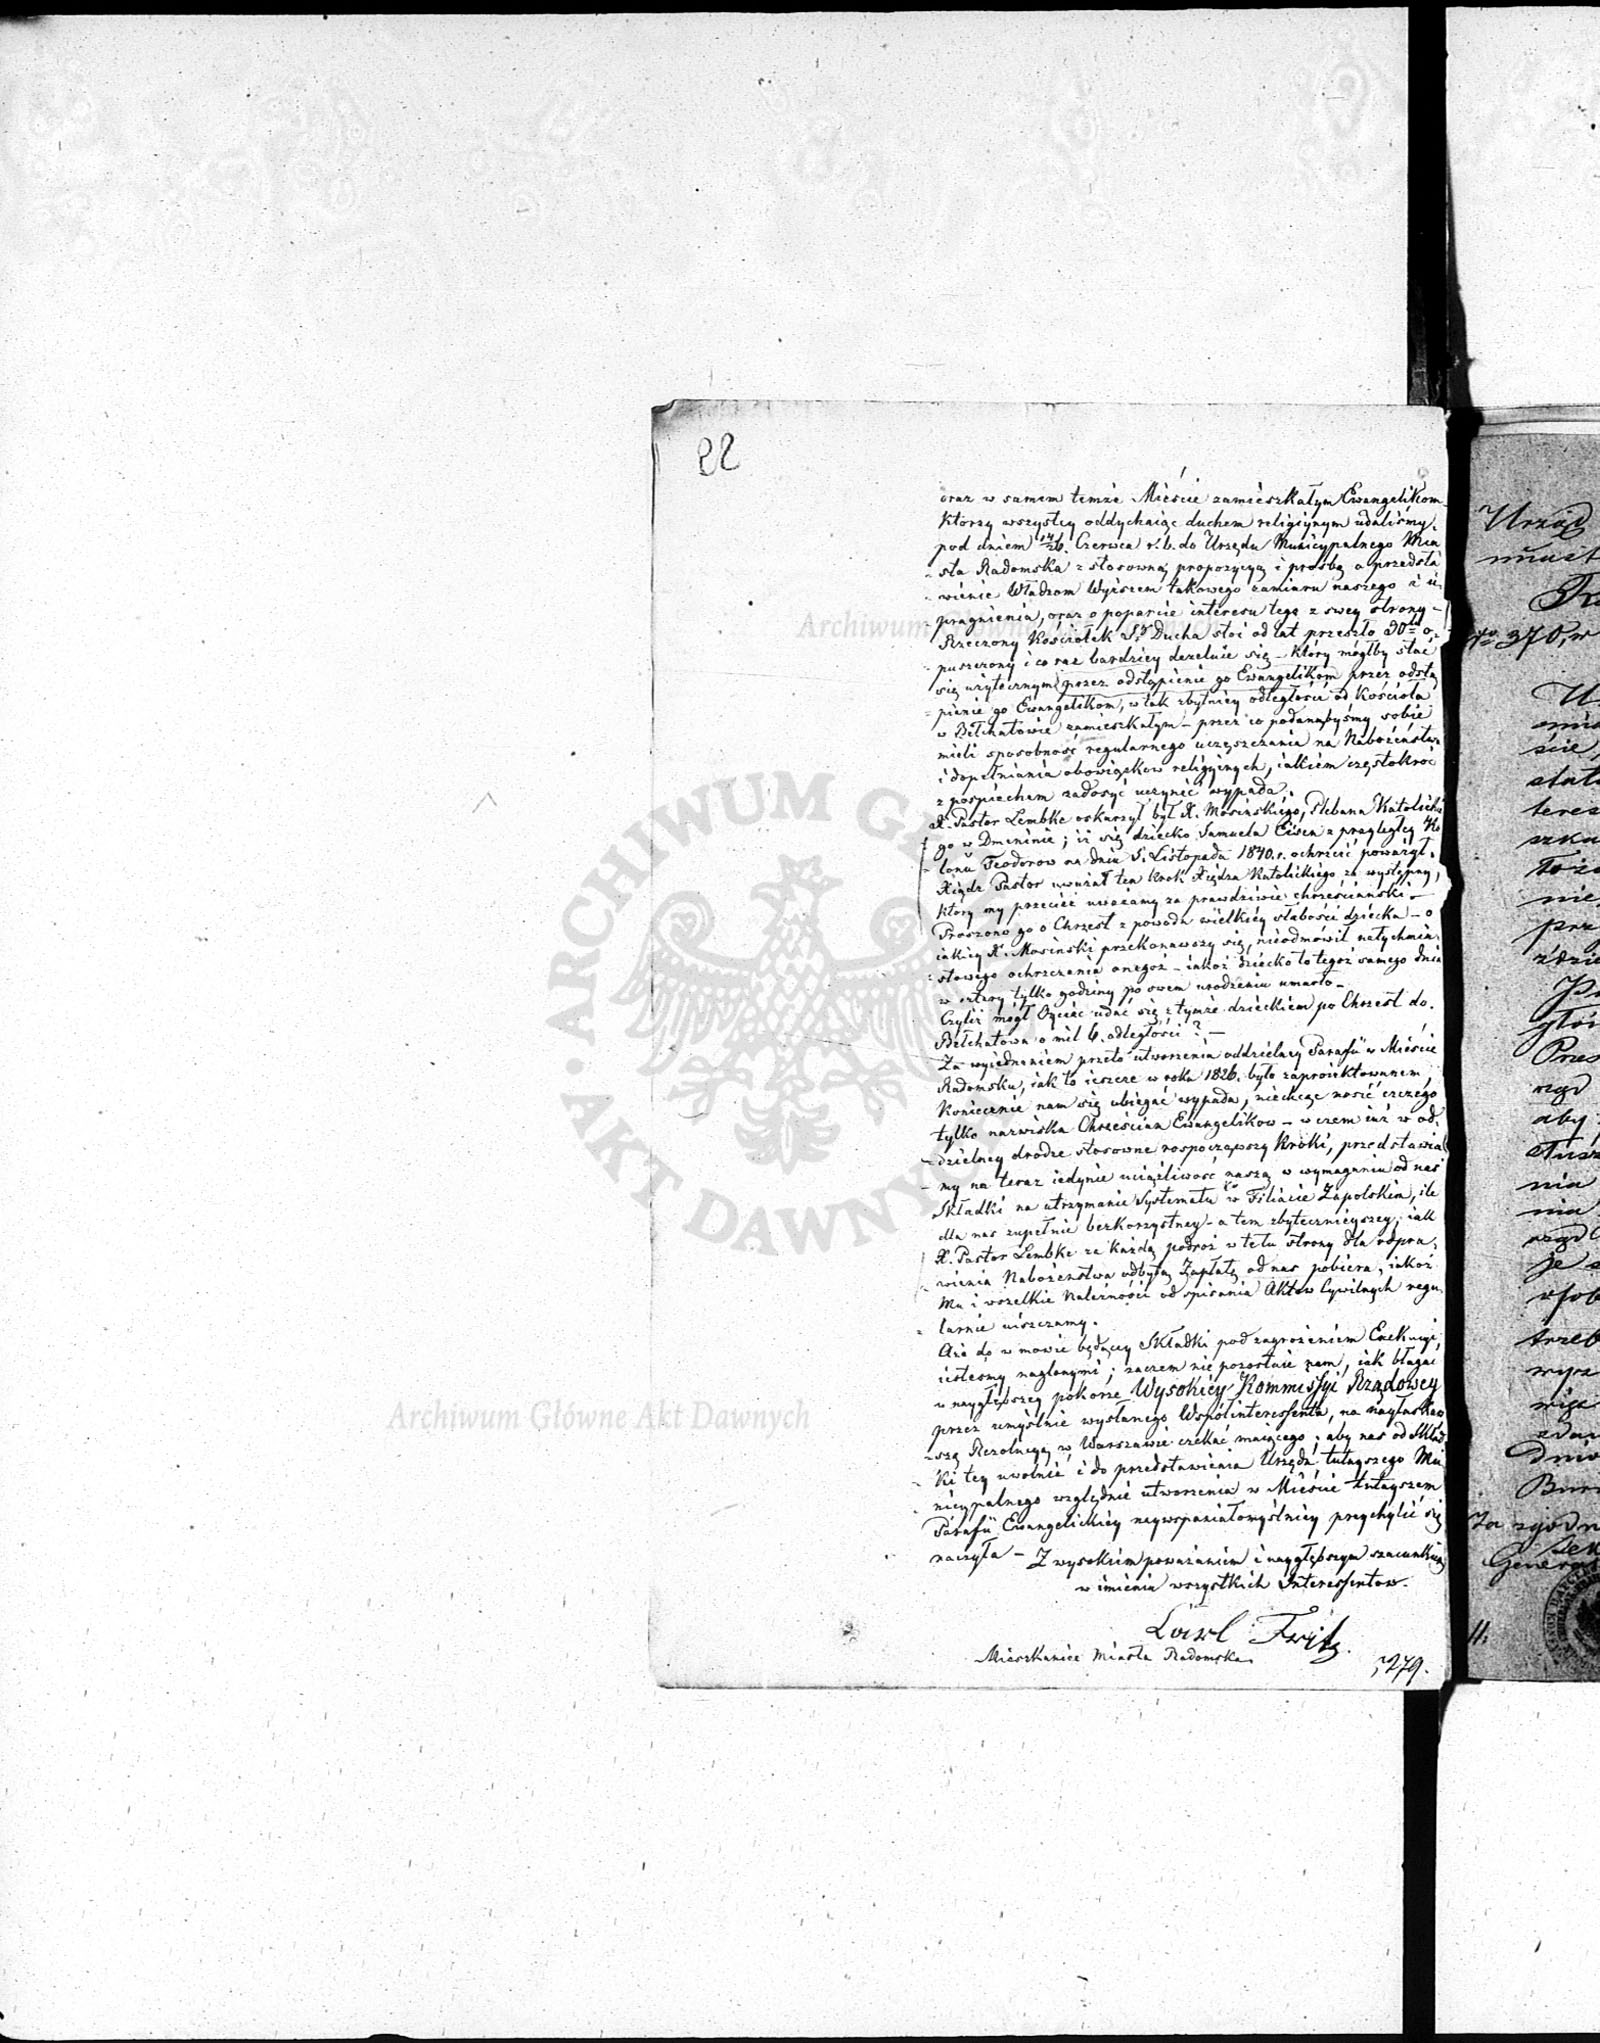 22
oraz w samem temże Mieście zamieszkałym Ewangelikom
którzy wszyscy oddychaiąc duchem religiynym udaliśmy
pod dniem 14/26. Czerwca r. b. do Urzędu Municypalnego Mia
sta Radomska z stosowną propozycyą i prośbą o przedsta
wienie Władzom Wyższem takowego zamiaru naszego i u
pragnienia, oraz o poparcie interesu tego z swey strony –
Rzeczony Kościołek S. Ducha stoi od lat przeszło 30tu o
puszczony i co raz bardziey dezeluie się – który mógłby stać
się użytecznym przez odstąpienie go Ewangelikom przez odstą
pienie go Ewangelikom, w tak zbytniey odległości od Kościoła
w Bełchatowie zamieszkałym – przez co podanąbyśmy sobie
mieli sposobność regularnego uczęszczania na Nabożeństwa
i dopełniania obowiązkow religiynych, iakiem częstokroć
z pośpiechem zadosyć uczynić wypada.
X. Pastor Lembke oskarzył był X. Mosińskiego, Plebana Katolickie
go w Dmeninie; iż się dziecko Samuela Eisen z przyległey Ko
lonii Teodorow na dniu 5. Listopada 1840. r. ochrzcić poważył.
Xiądz Pastor uważał ten krok Xiędza Katolickiego za występny,
ktory my przecież uważamy za prawdziwie chrześcianski –
Proszono go o Chrzest z powodu wielkiey słabości dziecka – o
iakiey X. Mosinski przekonawszy się, nieodmówił natychmia
stowego ochrzczenia onegoż – iakoż dziecko to tegoż samego dnia
w cztery tylko godziny po swem urodzeniu umarło –
Czyliż mógł Oyciec udać się z tymże dzieckiem po Chrzest do
Bełchatowa o mil 6. odległości? –
Za wyiednaniem przeto utworzenia oddzielney Parafii w Mieście
Radomsku, iak to ieszcze w roku 1826. było zaproiektowanem,
koniecznie nam się ubiegać wypada, niechcąc nosić czczego
tylko nazwiska Chrześcian Ewangelikow – w czem iuż w od
dzielney drodze stosowne rospocząwszy kroki, przedstawia
my na teraz iedynie uciążliwość naszą w wymaganiu od nas
Składki na utrzymanie Systematu w Filiacie Zapolskim, ile
dla nas zupełnie bezkorzystney – a tem zbyteczniejszey, iak
X. Pastor Lembke za każdą podroż w te tu strony dla odpra
wienia Nabożenstwa odbytą Zapłatę od nas pobiera, iakoż
Mu i wszelkie Należności od spisania Aktow Cywilnych regu
larnie uiszczamy.
Ato do w mowie będącey Składki pod zagrożeniem Exekucyi
iesteśmy naglonymi; zaczem nie pozostaie nam, iak błagać
w naygłębszey pokorze Wysokiey Kommissyi Rządowey
przez umyślnie wysłanego Wspołinteressenta, na nayłaskaw
szą Rezolucyą w Warszawie czekać maiącego; aby nas od Skład
ki tey uwolnić i do przedstawienia Urzędu tutayszego Mu
nicypalnego względnie utworzenia w Mieście tutayszem
Parafii Ewangelickiey naywspaniałomyślniey przychylić się
raczyła – Z wysokiem poważaniem i naygłębszym szacunkiem
w imieniu wszystkich Interessentow.
Carl Fritz.
Mieszkaniec Miasta Radomska
279.
Archiwum Główne Akt Dawnych
ARCHIWUM GŁÓWNE AKT DAWNYCH
Archiwum Główne Akt Dawnych
Urząd
370, w
aby
nie
nia
nia
Za zgodn
11.